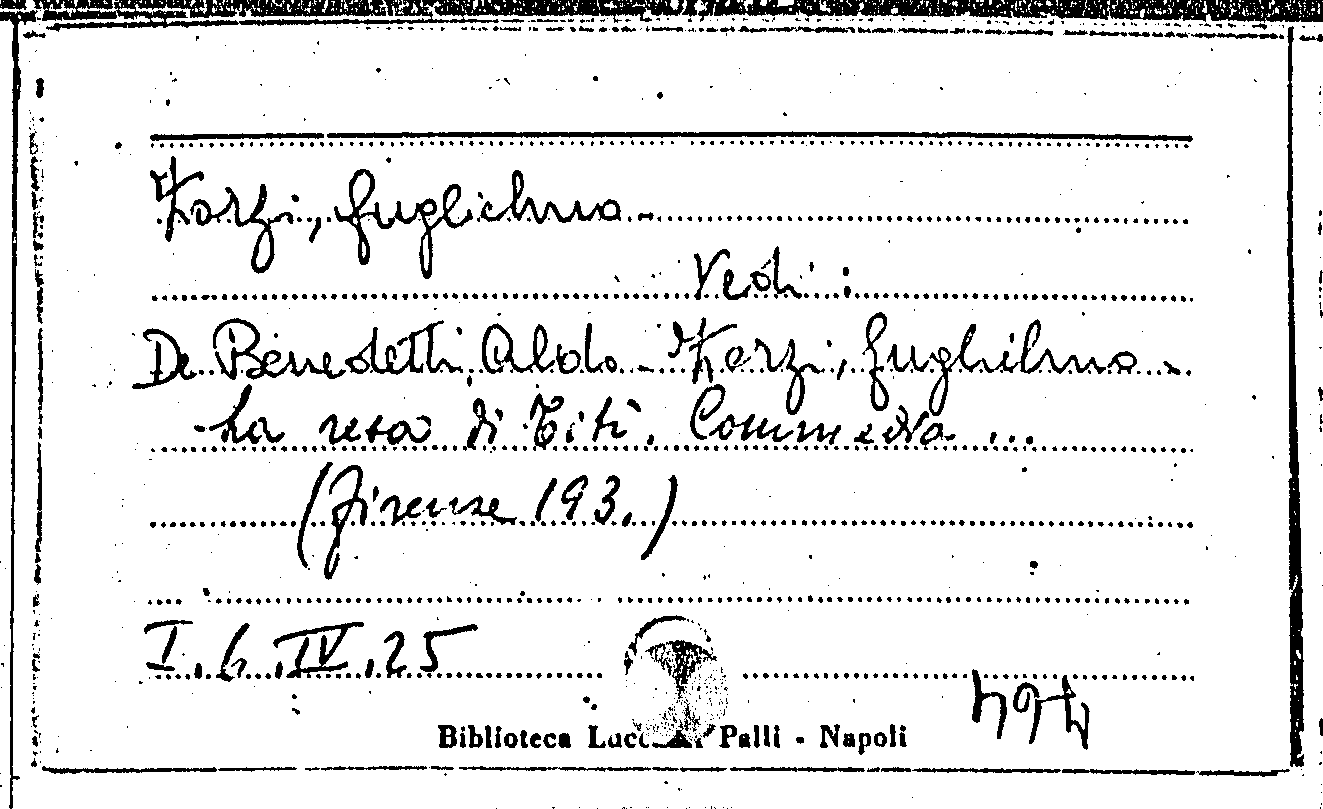 Zorzi, Guglielmo -
Vedi :
De Benedetti, Aldo - Zorzi, Guglielmo -
La resa di Titì. Commedia ...
(Firenze 193.)
I.6.IV.25
Biblioteca Lucchesi Palli - Napoli